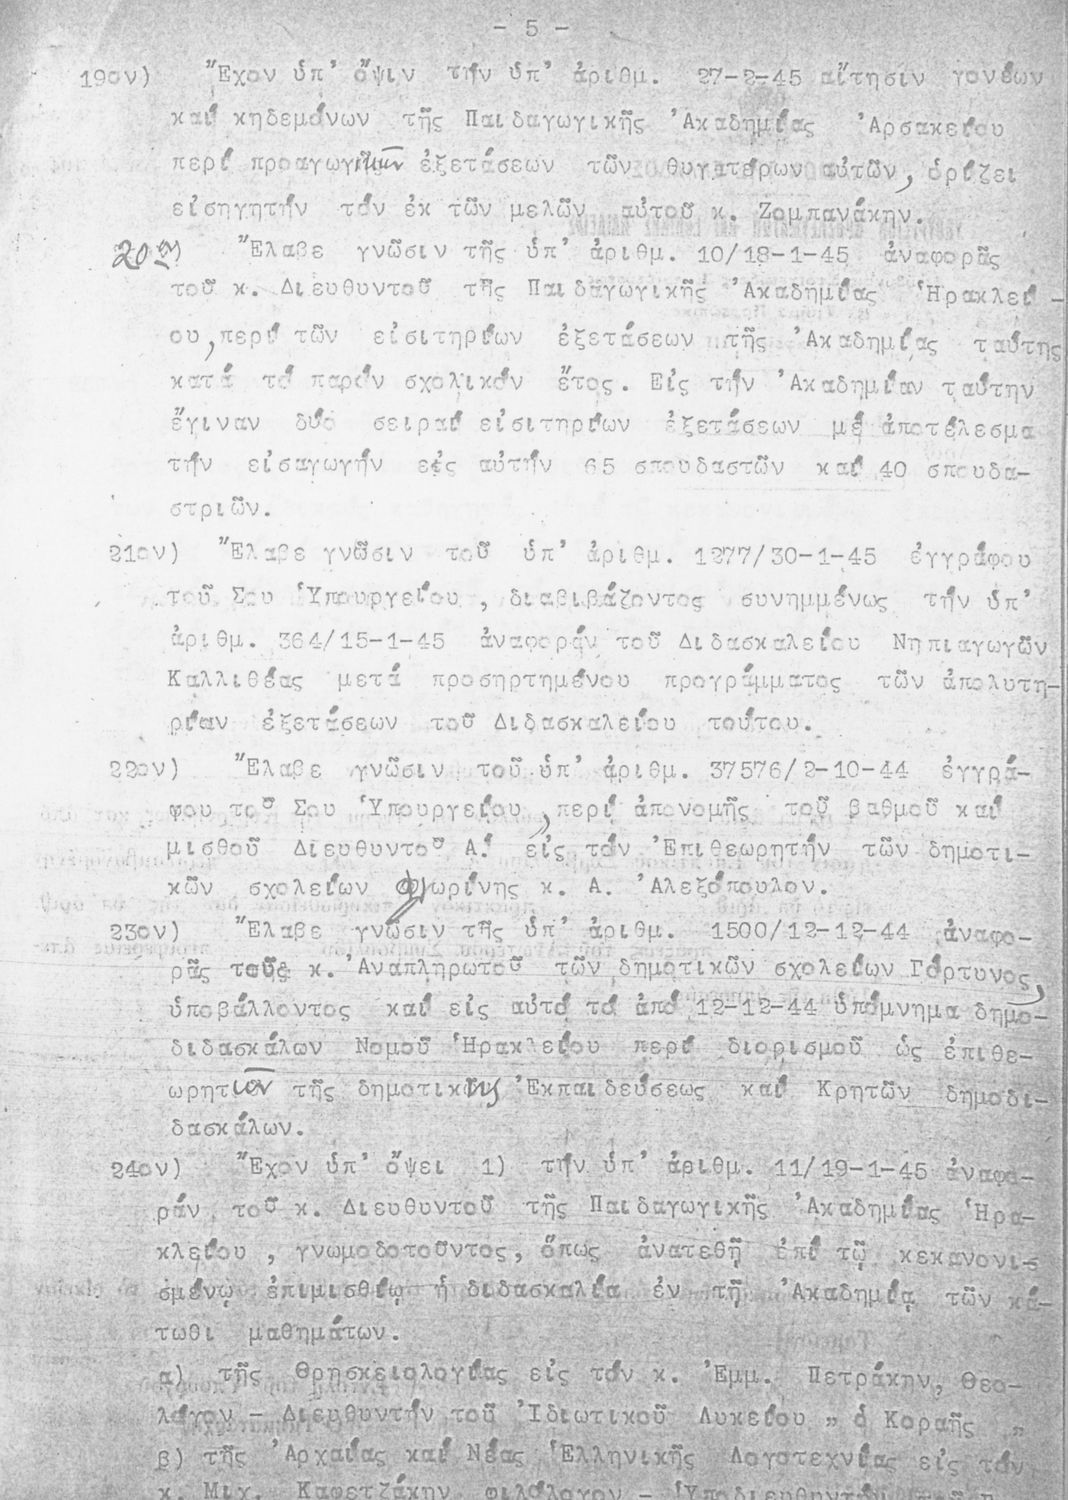 - 5 -
19ον) Ἔχον ὑπ' ὄψιν τήν ὑπ' ἀριθμ. 27-2-45 αἴτησιν γονέων
καί κηδεμόνων τῆς Παιδαγωγικῆς Ἀκαδημίας Ἀρσακείου
περί προαγωγικῶν ἐξετάσεων τῶν θυγατέρων αὐτῶν, ὁρίζει
εἰσηγητήν τόν ἐκ τῶν μελῶν αὐτοῦ κ. Ζομπανάκην.
20ον) Ἔλαβε γνῶσιν τῆς ὑπ' ἀριθμ. 10/18-1-45 ἀναφορᾶς
τοῦ κ. Διευθυντοῦ τῆς Παιδαγωγικῆς Ἀκαδημίας Ἡρακλεί -
ου, περί τῶν εἰσιτηρίων ἐξετάσεων τῆς Ἀκαδημίας ταύτης
κατά τό παρόν σχολικόν ἔτος. Εἰς τήν Ἀκαδημίαν ταύτην
ἔγιναν δύο σειραί εἰσιτηρίων ἐξετάσεων μέ ἀποτέλεσμα
τήν εἰσαγωγήν εἰς αὐτήν 65 σπουδαστῶν καί 40 σπουδα-
στριῶν.
21ον) Ἔλαβε γνῶσιν τοῦ ὑπ' ἀριθμ. 1277/30-1-45 ἐγγράφου
τοῦ Σου Ὑπουργείου, διαβιβάζοντος συνημμένως τήν ὑπ'
ἀριθμ. 364/15-1-45 ἀναφοράν τοῦ Διδασκαλείου Νηπιαγωγῶν
Καλλιθέας μετά προσηρτημένου προγράμματος τῶν ἀπολυτη-
ρίων ἐξετάσεων τοῦ Διδασκαλείου τούτου.
22ον) Ἔλαβε γνῶσιν τοῦ ὑπ' ἀριθμ. 37576/2-10-44 ἐγγρά-
φου τοῦ Σου Ὑπουργείου, περί ἀπονομῆς τοῦ βαθμοῦ καί
μισθοῦ Διευθυντοῦ Α! εἰς τόν Ἐπιθεωρητήν τῶν δημοτι-
κῶν σχολείων Φλωρίνης κ. Α. Ἀλεξόπουλον.
23ον) Ἔλαβε γνῶσιν τῆς ὑπ' ἀριθμ. 1500/12-12-44 ἀναφο-
ρᾶς τοῦ κ. Ἀναπληρωτοῦ τῶν δημοτικῶν σχολείων Γόρτυνος,
ὑποβάλλοντος καί εἰς αὐτό τό ἀπό 12-12-44 ὑπόμνημα δημο-
διδασκάλων Νομοῦ Ἡρακλείου περί διορισμοῦ ὡς ἐπιθε-
ωρητῶν τῆς δημοτικῆς Ἐκπαιδεύσεως καί Κρητῶν δημοδι-
δασκάλων.
24ον) Ἔχον ὑπ' ὄψει 1) τήν ὑπ' ἀριθμ. 11/19-1-45 ἀναφο-
ράν τοῦ κ. Διευθυντοῦ τῆς Παιδαγωγικῆς Ἀκαδημίας Ἡρα-
κλείου, γνωμοδοτοῦντος, ὅπως ἀνατεθῇ ἐπί τῷ κεκανονι-
σμένῳ ἐπιμισθίῳ ἡ διδασκαλία ἐν τῇ Ἀκαδημίᾳ τῶν κά-
τωθι μαθημάτων.
α) τῆς Θρησκειολογίας εἰς τόν κ. Ἐμμ. Πετράκην, Θεο-
λόγον - Διευθυντήν τοῦ Ἰδιωτικοῦ Λυκείου „ ὁ Κοραῆς „
β) τῆς Ἀρχαίας καί Νέας Ἑλληνικῆς Λογοτεχνίας εἰς τόν
κ. Μιχ. Καφετζάκην φιλόλογον - Ὑποδιευθυντήν